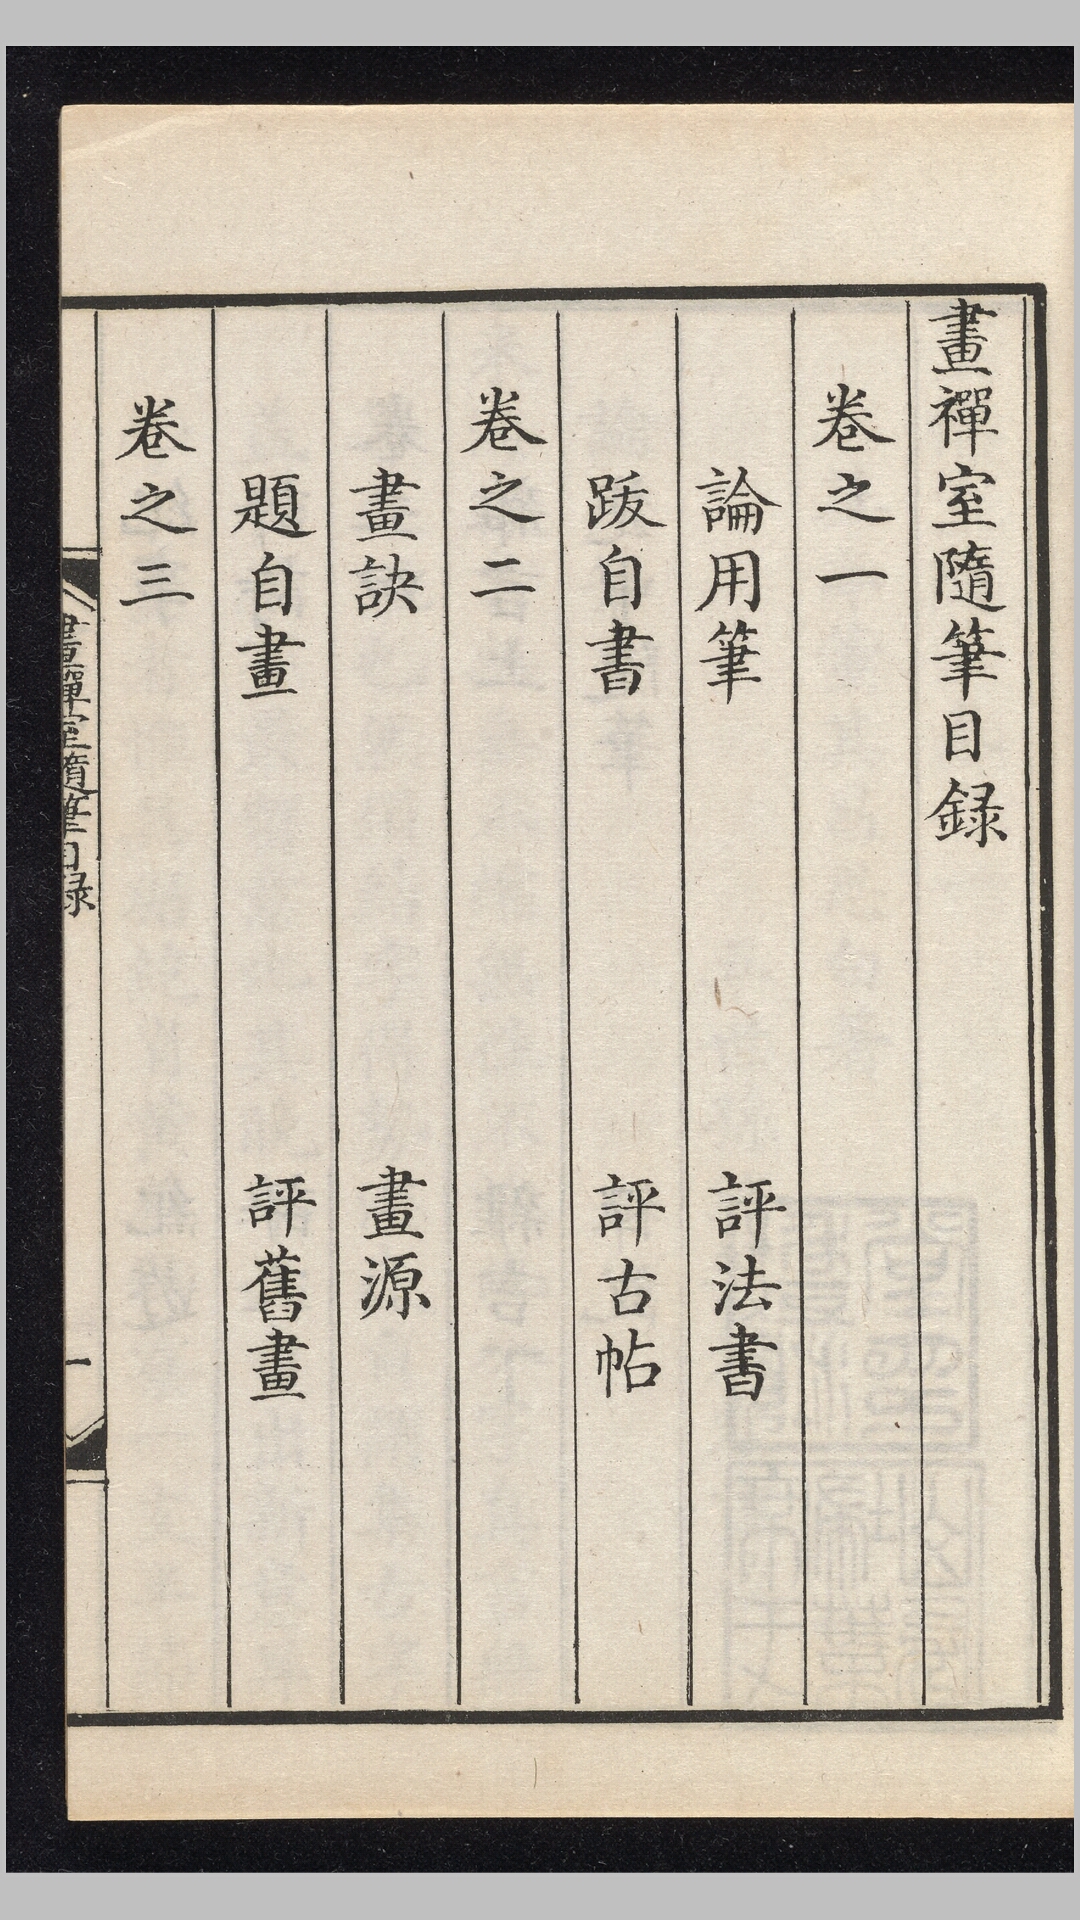 畫禪室隨筆目録
卷之一
論用筆　評法書
跋自書　評古帖
卷之二
畫訣　畫源
題自畫　評舊畫
卷之三
畫禪室隨筆目録　一